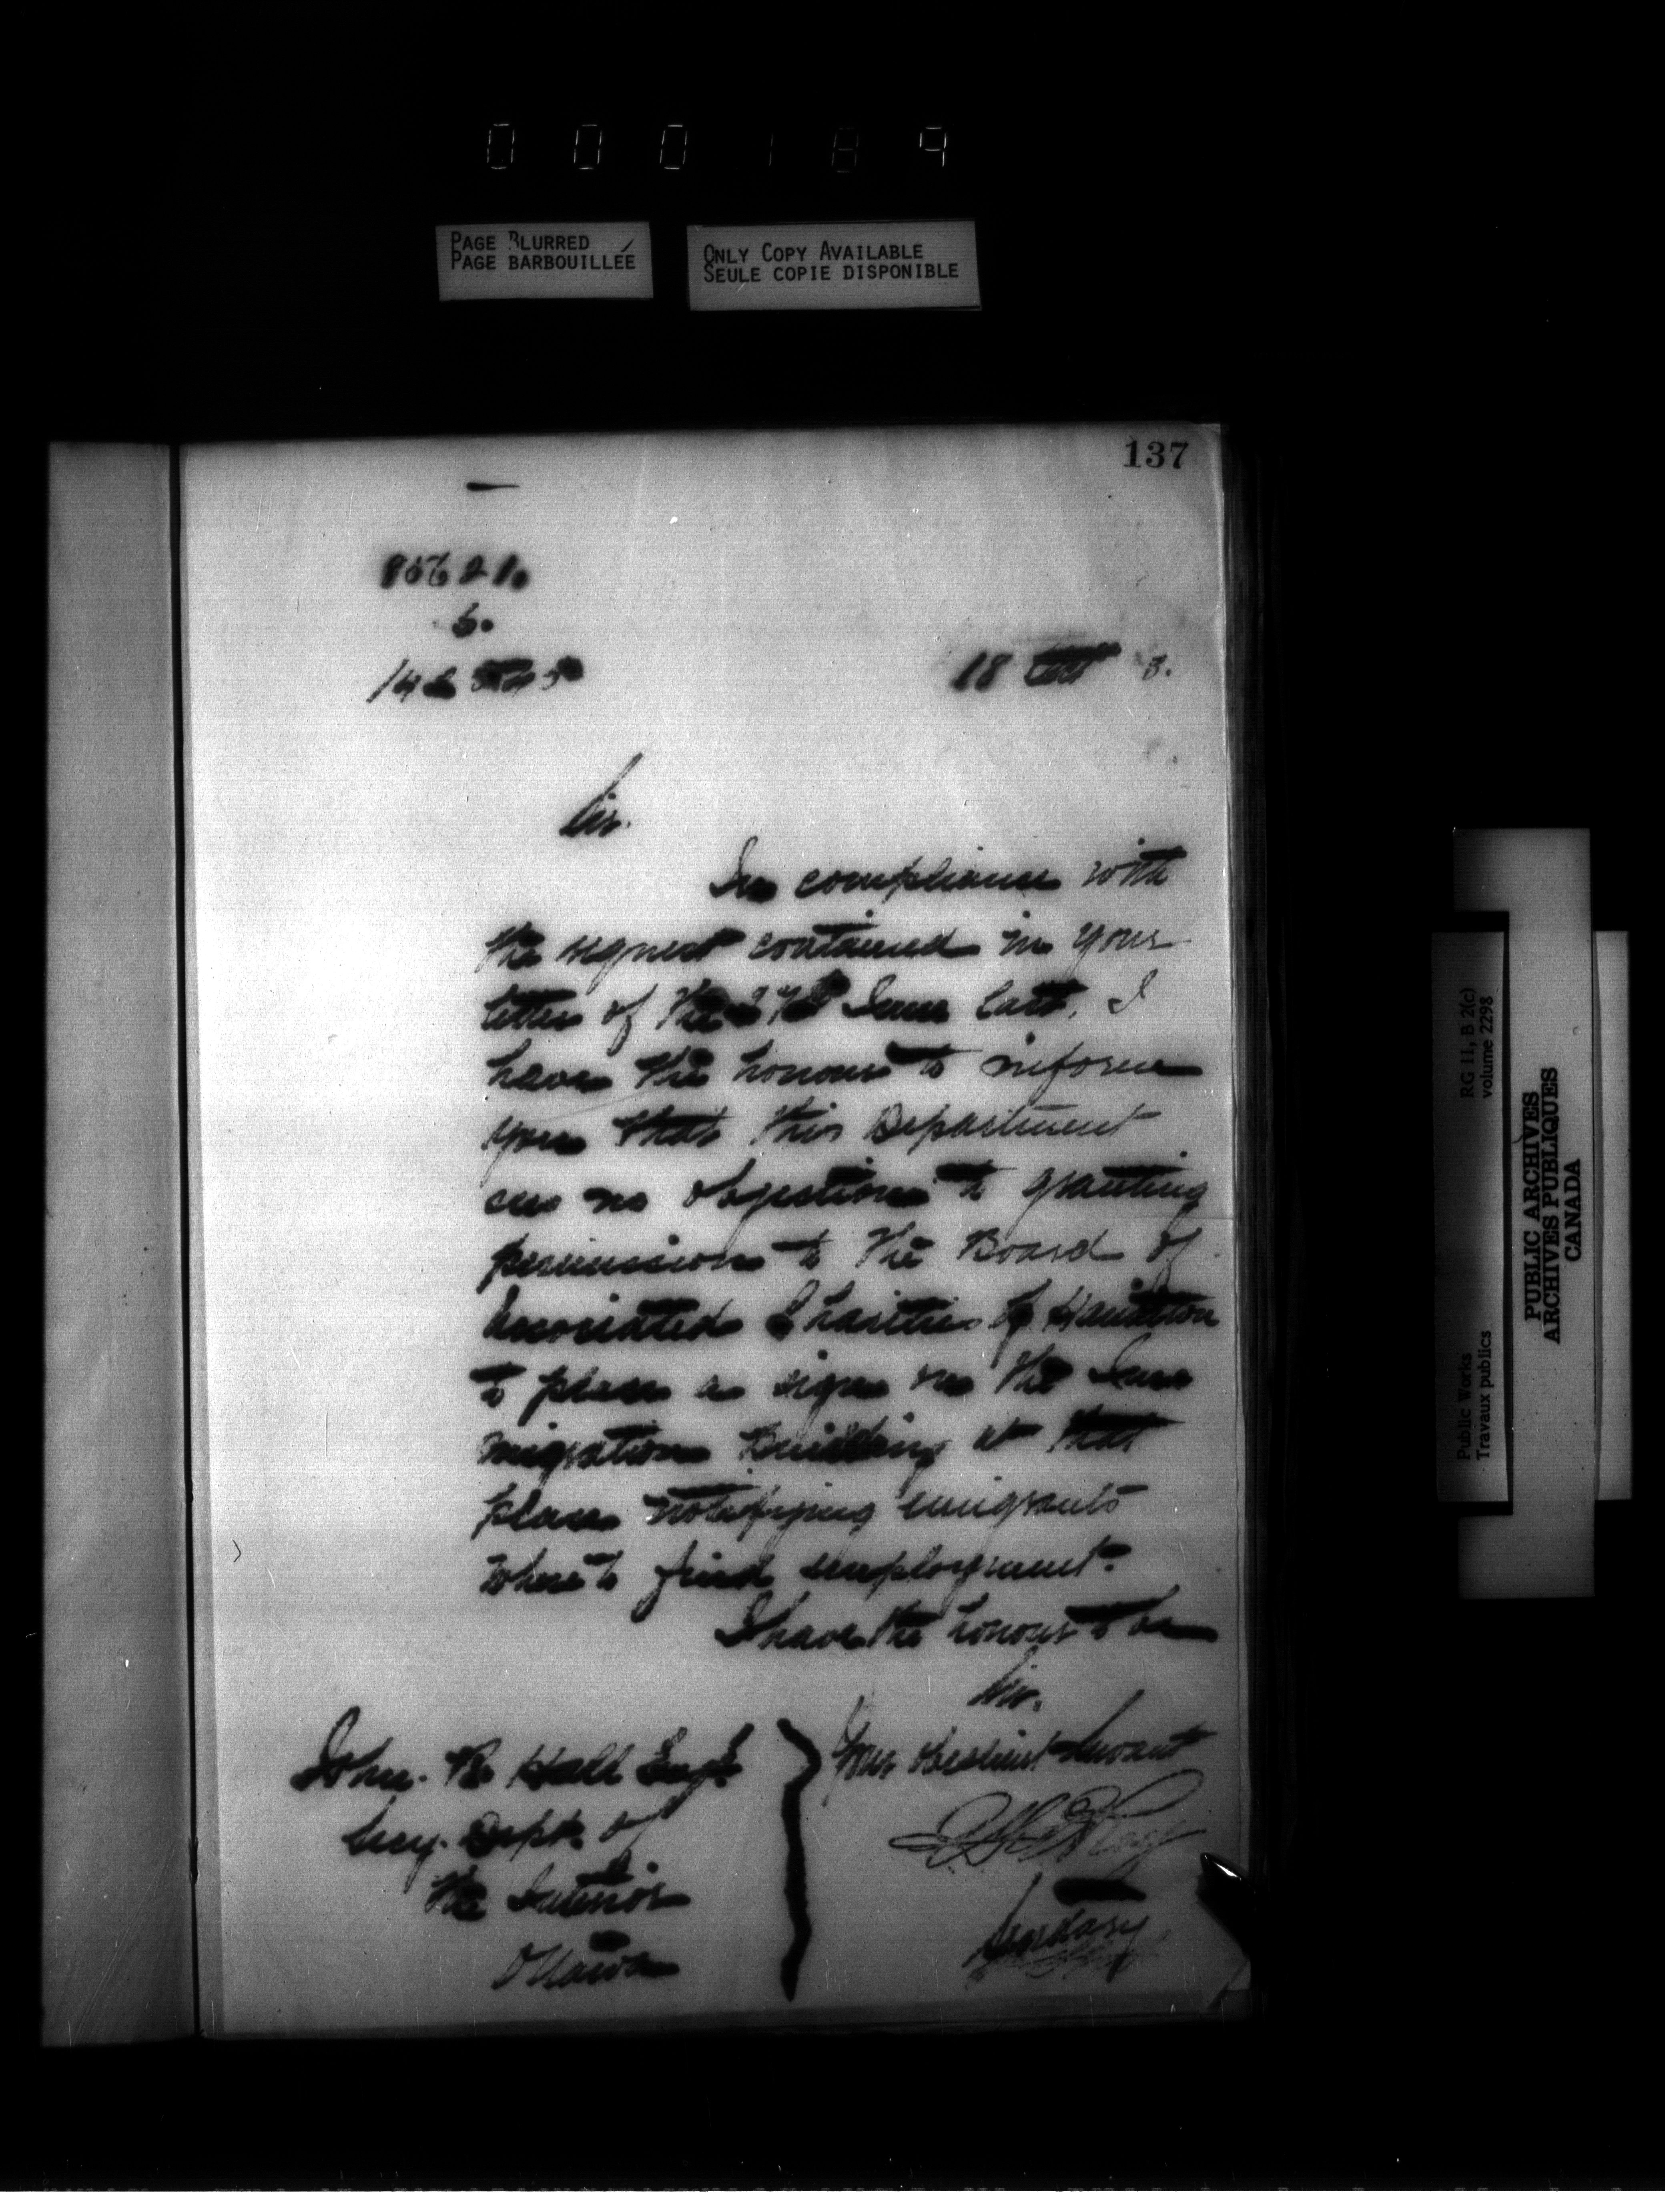 000189
PAGE BLURRED
PAGE BARBOUILLÉE
ONLY COPY AVAILABLE
SEULE COPIE DISPONIBLE
137
18 3.
Sir.
In compliance with
the request contained in your
letter of the June last, I
have the honour to inform
you that this Department
sees no objection to granting
permission to the Board of
Associated Charities of Hamilton
to place a sign on the Imm
migration Building at that
place notifying emigrants
where to find employment.
I have the honour to be
Sir.
Your obedient servant
Secretary
John. R. Hall Esq.
Secy. Dept. of
the Interior
Ottawa
RG 11, B 2(c)
volume 2298
Public Works
Travaux publics
PUBLIC ARCHIVES
ARCHIVES PUBLIQUES
CANADA